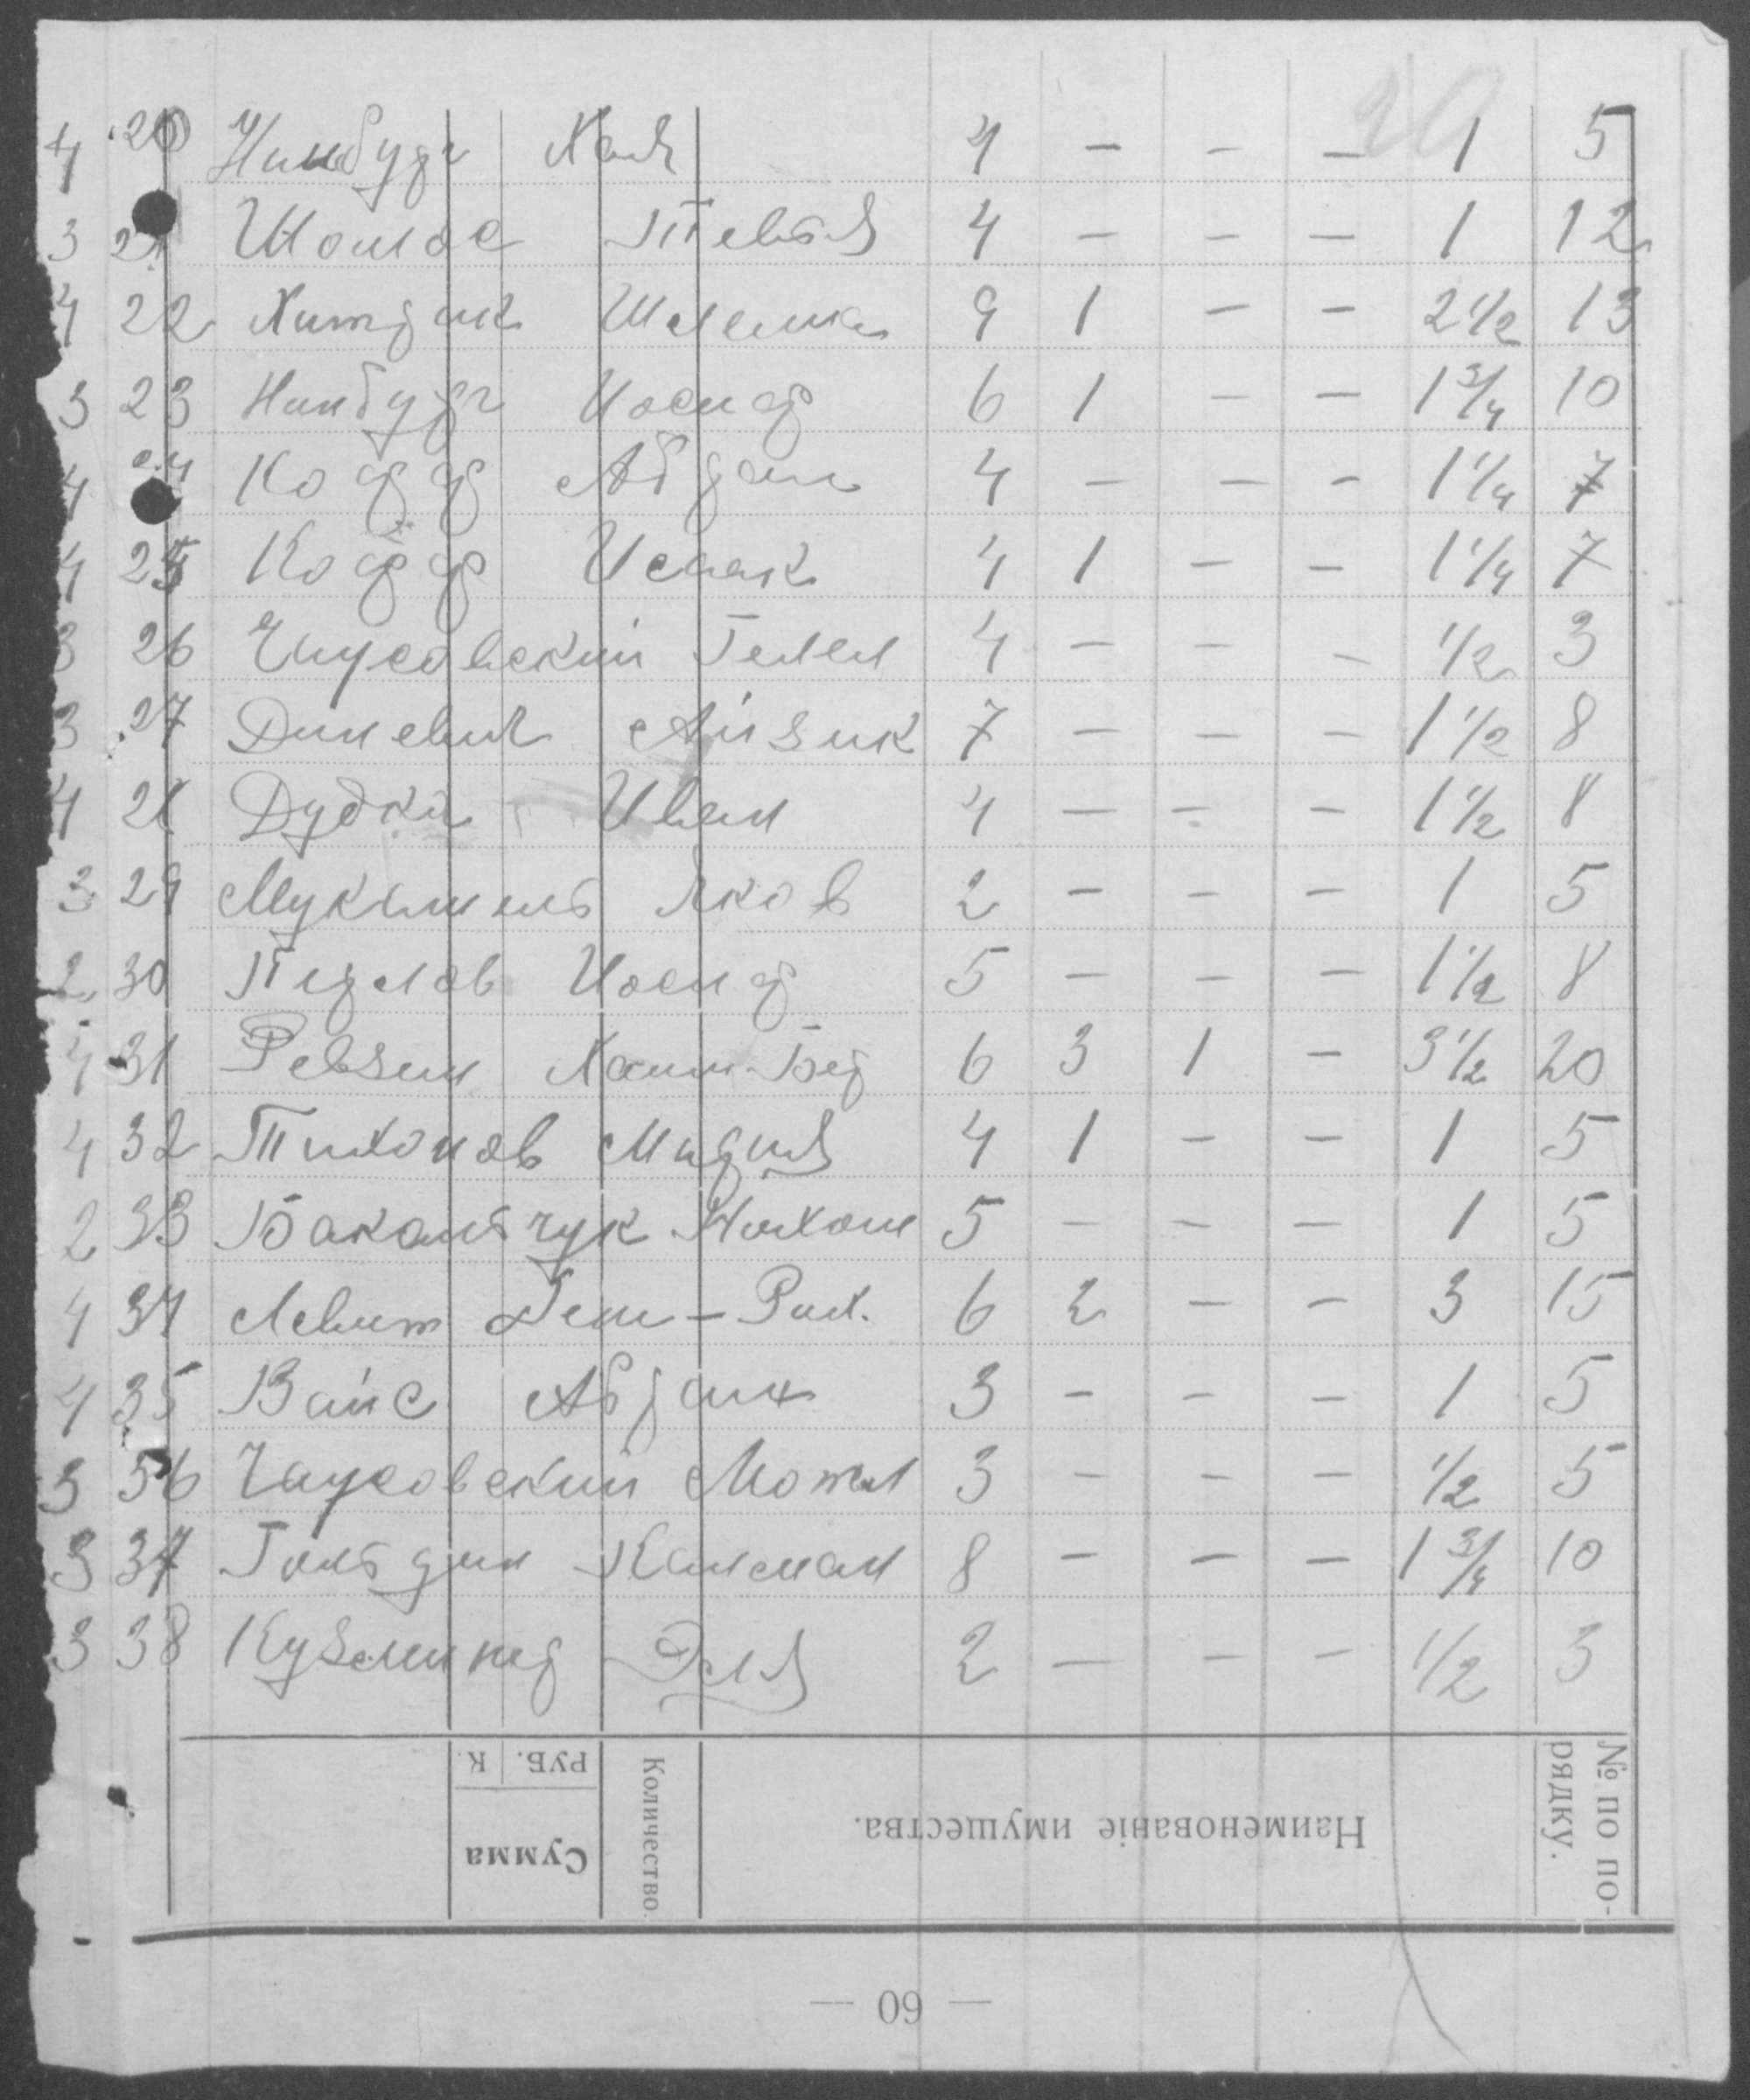 20
4 20 Нинбург Хая 4 — — — 1 5
3 21 Шолос Тевья 4 — — — 1 12
4 22 Хитрик Шлемка 9 1 — — 2 1/2 13
3 23 Нинбург Иосиф 6 1 — — 1 3/4 10
4 24 Кофф Абрам 4 — — — 1 1/4 7
4 25 Кофф Исаак 4 1 — — 1 1/4 7
3 26 Чаусовский Гилел 4 — — — 1/2 3
3 27 Диневич Айзик 7 — — — 1 1/2 8
4 28 Дудка Иван 4 — — — 1 1/2 8
3 29 Яков 2 — — — 1 5
2 30 Перлов Иосиф 5 — — — 1 1/2 8
4 31 Ревзин Хаим-Бер 6 3 1 — 3 1/2 20
4 32 Тихонов Мария 4 1 — — 1 5
2 33 Бакальчук Нохом 5 — — — 1 5
4 34 Левит — Рих. 6 2 — — 3 15
4 35 Вайс Абрам 3 — — — 1 5
3 36 Чаусовский Мотел 3 — — — 1/2 5
3 37 Гольдин Калман 8 — — — 1 3/4 10
3 38 Кузлинер Эля 2 — — — 1/2 3
№ по по-
рядку.
Наименованіе имущества.
Количество.
Сумма
РУБ. К.
— 60 —